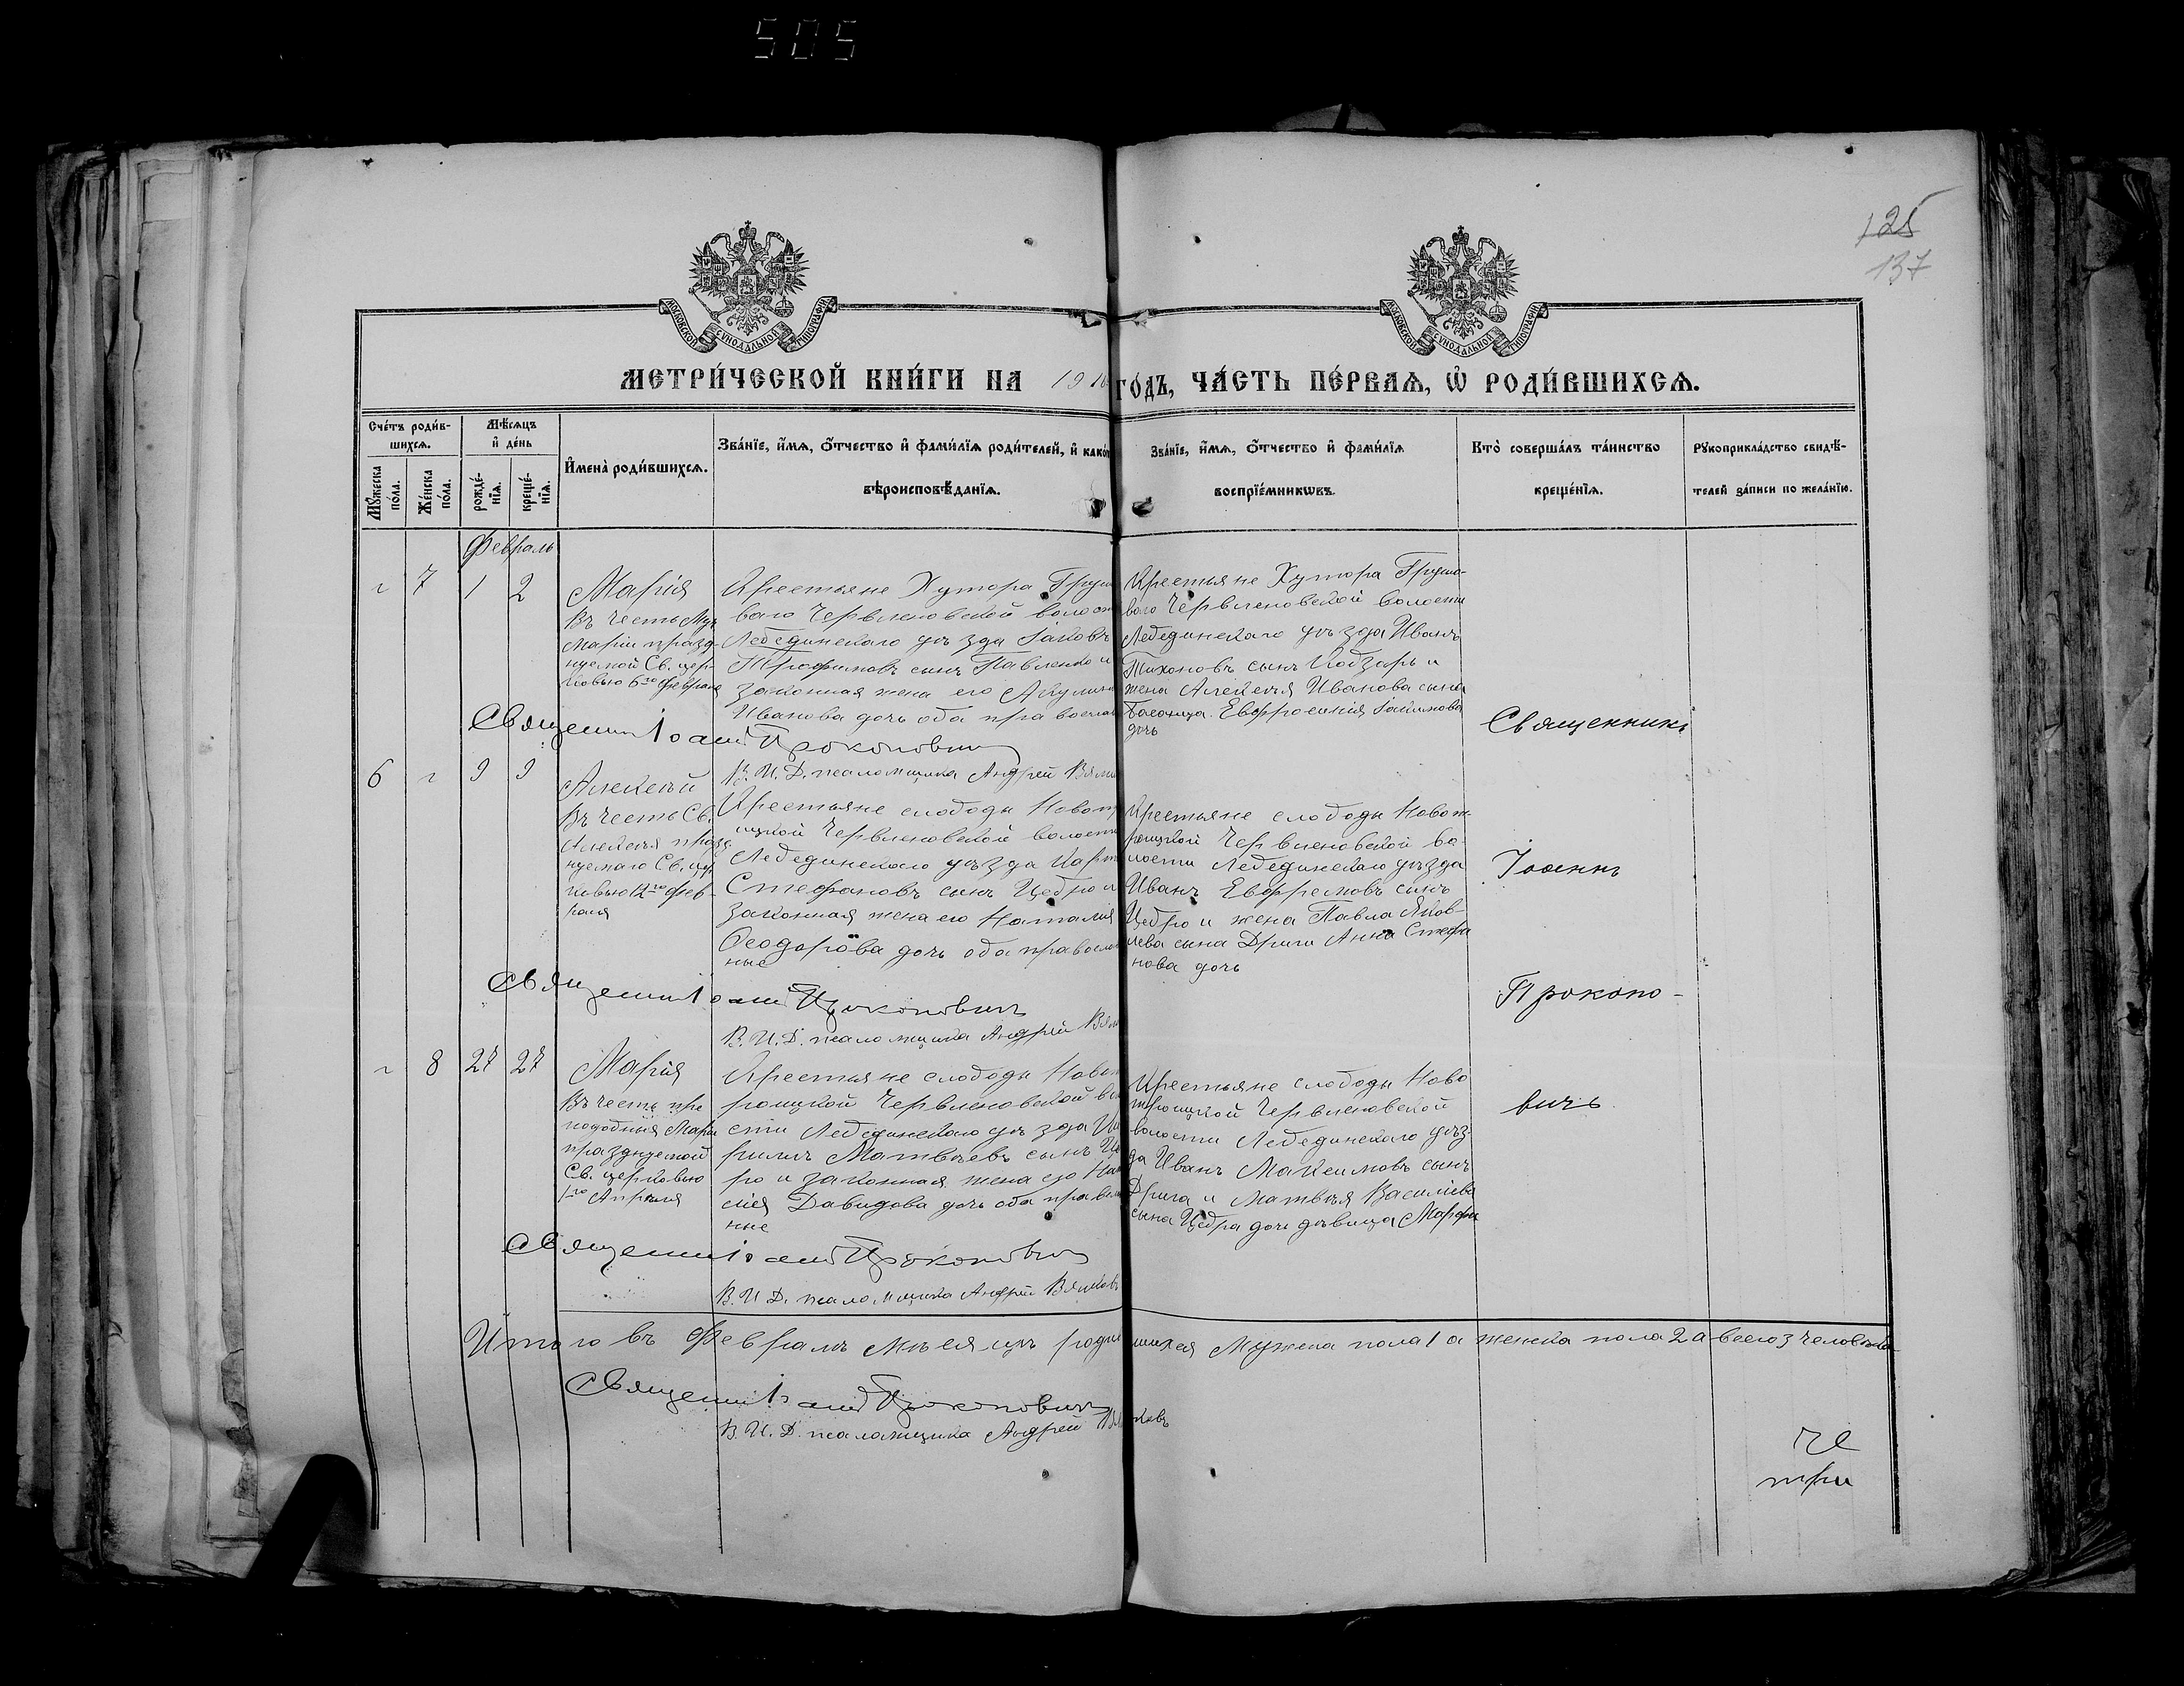 505
125
137
МОСКОВСКОЙ СѴНОДАЛЬНОЙ ТИПОГРАФІИ
МОСКОВСКОЙ СѴНОДАЛЬНОЙ ТИПОГРАФІИ
МЕТРИ́ЧЕСКОЙ КНИ́ГИ НА 191 ГО́ДЪ, ЧА́СТЬ ПЕ́РВАѦ, Ѡ҆ РОДИ́ВШИХСѦ.
Сче́тъ роди́в-
шихсѧ.
Мꙋ́жеска
по́ла.
Же́нска
по́ла.
Мѣ́сѧцъ
и҆ де́нь
рожде́-
нїѧ.
креще́-
нїѧ.
И҆мена̀ роди́вшихсѧ.
Зва́нїе, и҆́мѧ, ѻ҆́тчество и҆ фами́лїѧ роди́телей, и҆ како́
вѣроисповѣ́данїѧ.
Зва́нїе, и҆́мѧ, ѻ҆́тчество и҆ фами́лїѧ
воспрїе́мникѡвъ.
Кто̀ соверша́лъ та́инство
креще́нїѧ.
Рꙋкоприкла́дство свидѣ́-
телей за́писи по жела́нїю.
Февраль
7 1 2
Марія
въ честь Муч
Маріи празд-
нуемой Св. цер-
ковью 6го февраля
Крестьяне Хутора Груш
ваго Червленовской волост
Лебединскаго уѣзда Іаковъ
Трофимовъ сынъ Павленко и
законная жена его Акулина
Иванова дочь оба православ
Крестьяне Хутора Грушо-
ваго Червленовской волости
Лебединскаго уѣзда Иванъ
Тихоновъ сынъ Кобзарь и
жена Алексѣя Иванова сына
Евфросинія Іакимова
дочь
Священникъ
Іоаннъ
Прокопо-
вичъ
Священ Іоаннъ Прокопович
В. И. Д. псаломщика Андрей Вялк
6 9 9
Алексѣй
въ честь Св.
Алексѣя празд
нуемаго Св. цер
ковью 12го фев-
раля
Крестьяне слободы Новот
ицкой Червленовской волости
Лебединскаго уѣзда Карп
Стефановъ сынъ Цебро и
законная жена его Наталія
Ѳеодорова дочь оба православ
ные
Крестьяне слободы Новот-
роицкой Червленовской во-
лости Лебединскаго уѣзда
Иванъ Евфремовъ сынъ
Цебро и жена Павла Яков-
лева сына Дриги Анна Стефа
нова дочь
Священ Іоаннъ Прокопович
В. И. Д. псаломщика Андрей Вял
8 27 27
Марія
въ честь пре
подобныя Маріи
празднуемой
Св. церковью
1го Апрѣля
Крестьяне слободы Новот
роицкой Червленовской вол
сти Лебединскаго уѣзда Ки
риллъ Матвѣевъ сынъ Цеб
ро и законная жена его
сія Давидова дочь оба правосл
ные
Крестьяне слободы Ново
троицкой Червленовской
волости Лебединскаго уѣз-
да Иванъ Максимовъ сынъ
Дрига и Матвѣя Васильева
сына Цебра дочь дѣвица Марфа
Священ Іоаннъ Прокопович
В. И. Д. псаломщика Андрей Вялковъ
Итого въ Февралѣ мѣсяцѣ родившихся Мужеска пола 1 а женска пола 2 а всего 3 человѣка
Священ Іоаннъ Прокопович
В. И. Д. псаломщика Андрей Вялковъ
три